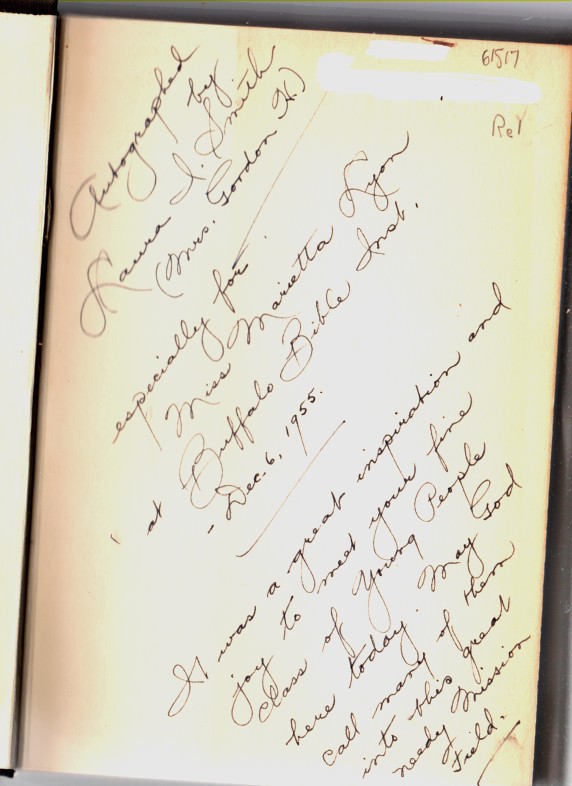 61517
Rel
Autographed
by
Laura I. Smith
(Mrs. Gordon H.)
especially for
Miss Marietta Lyon
at Buffalo Bible Inst.
- Dec. 6, 1955.
It was a great inspiration and
joy to meet your fine
class of Young People
here today. May God
call many of them
into this great
needy Mission
Field.